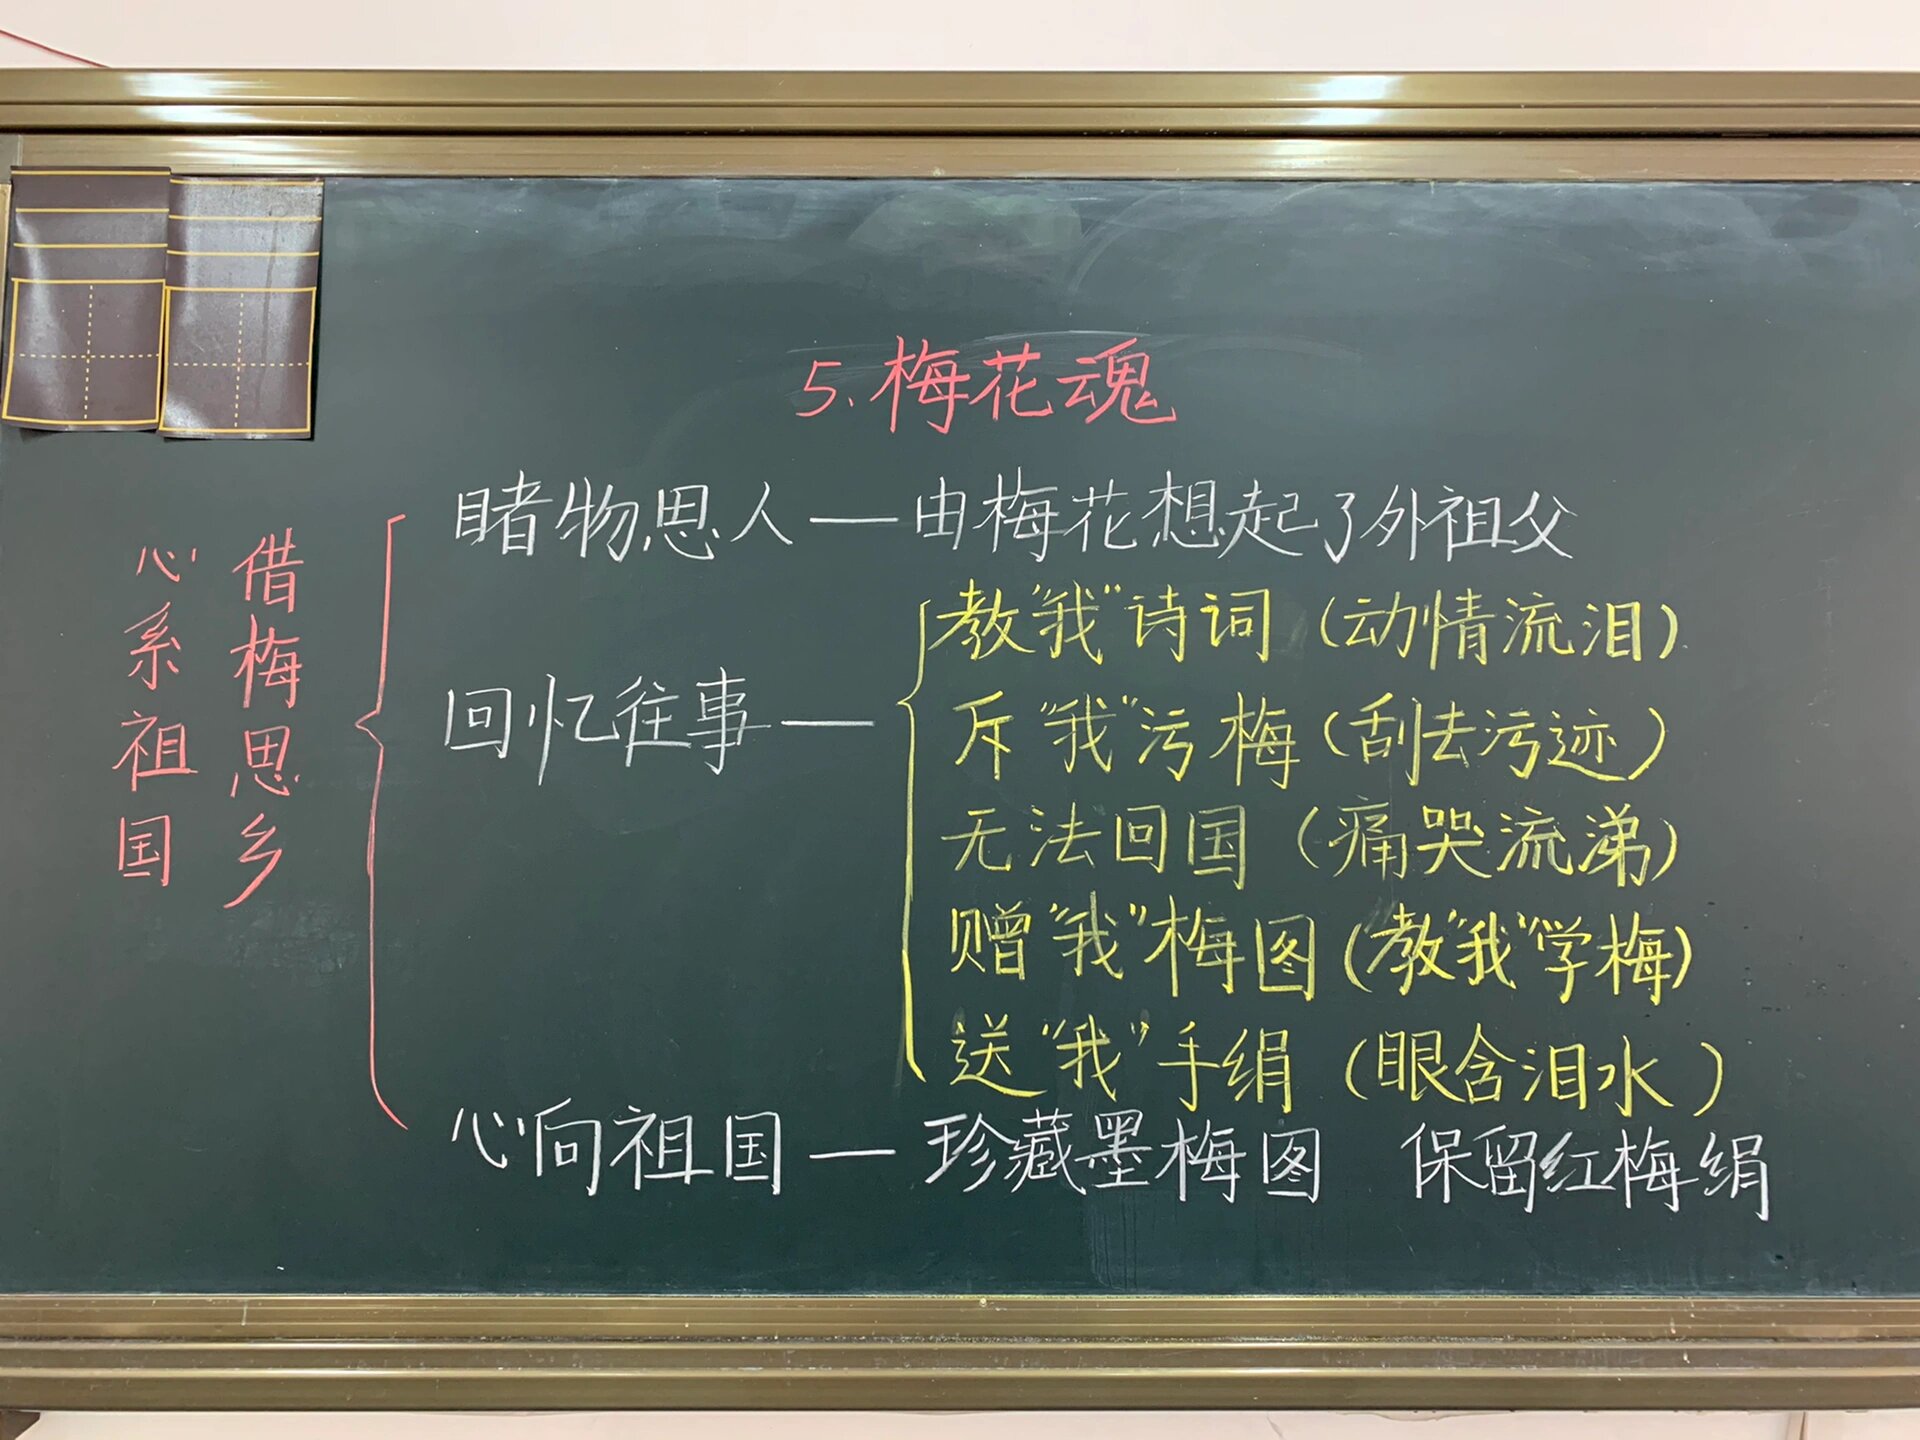 5.梅花魂
借梅思乡
心系祖国
睹物思人——由梅花想起了外祖父
回忆往事——
教“我”诗词（动情流泪）
斥“我”污梅（刮去污迹）
无法回国（痛哭流涕）
赠“我”梅图（教“我”学梅）
送“我”手绢（眼含泪水）
心向祖国——珍藏墨梅图 保留红梅绢